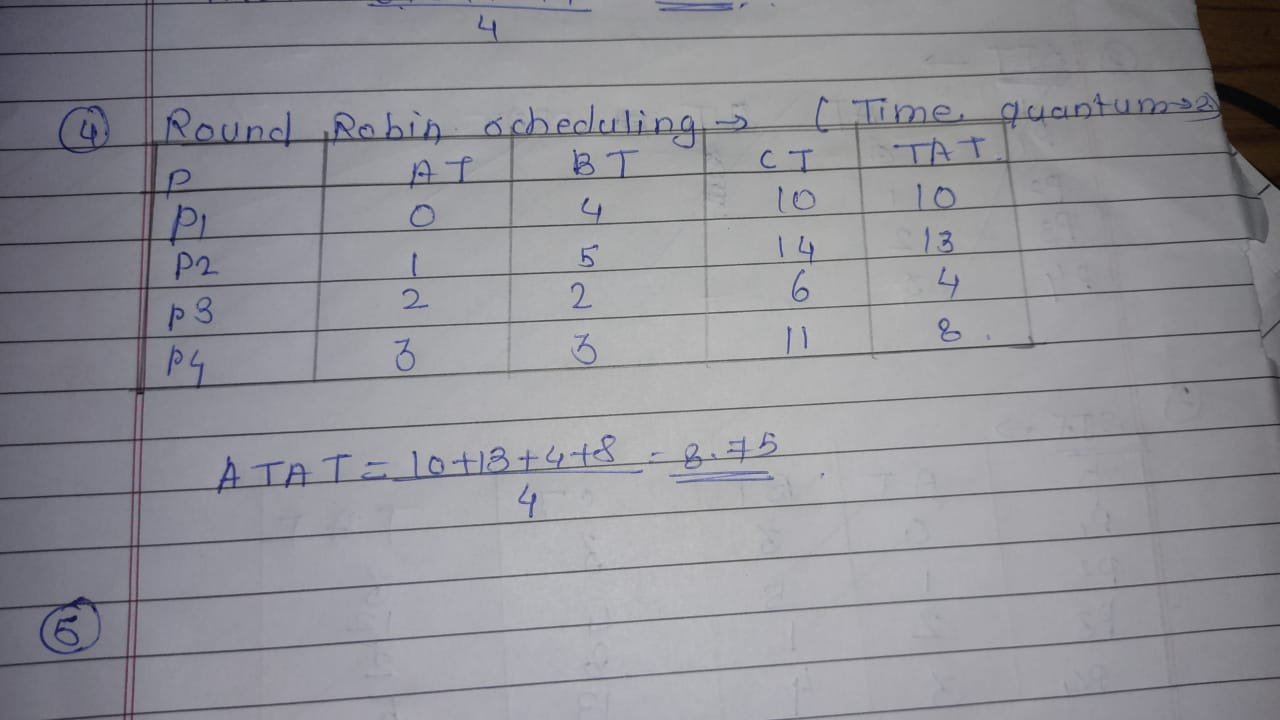 4
④ Round Robin scheduling → ( Time quantum → 2)
P AT BT CT TAT
P1 0 4 10 10
P2 1 5 14 13
P3 2 2 6 4
P4 3 3 11 8.
ATAT = 10+13+4+8 = 8.75
4
⑤